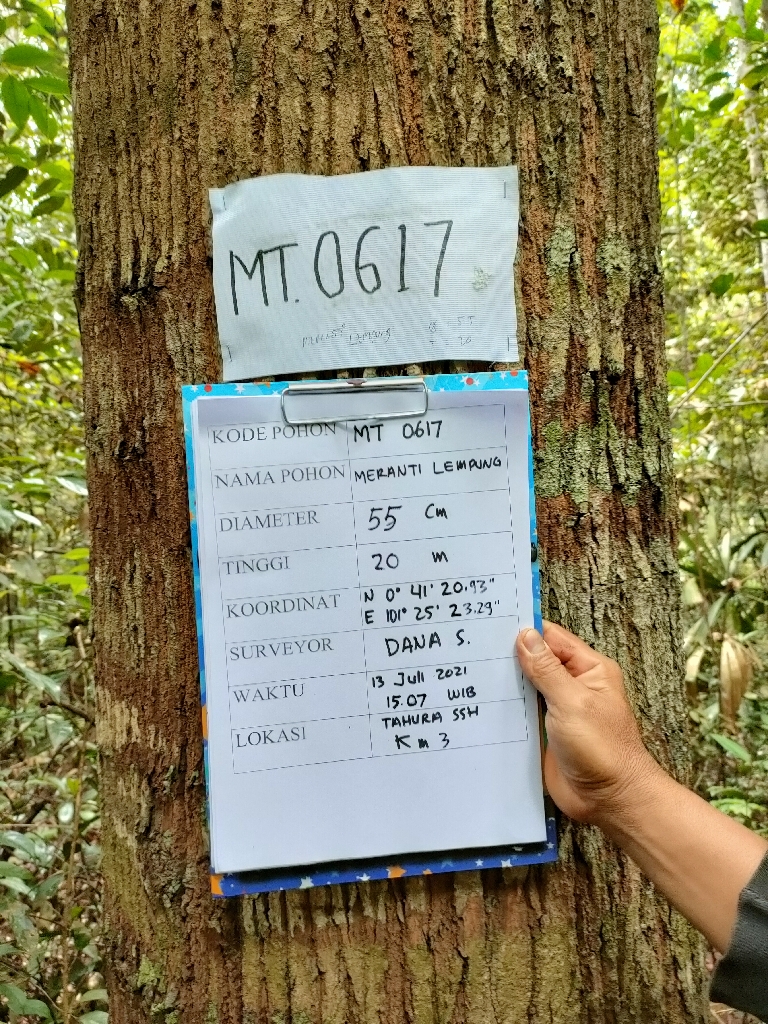 MT. 0617
KODE POHON MT 0617
NAMA POHON MERANTI LEMPUNG
DIAMETER 55 Cm
TINGGI 20 m
KOORDINAT N 0° 41' 20.93"
E 101° 25' 23.29"
SURVEYOR DANA S.
WAKTU 13 Juli 2021
15.07 WIB
LOKASI TAHURA SSH
Km 3